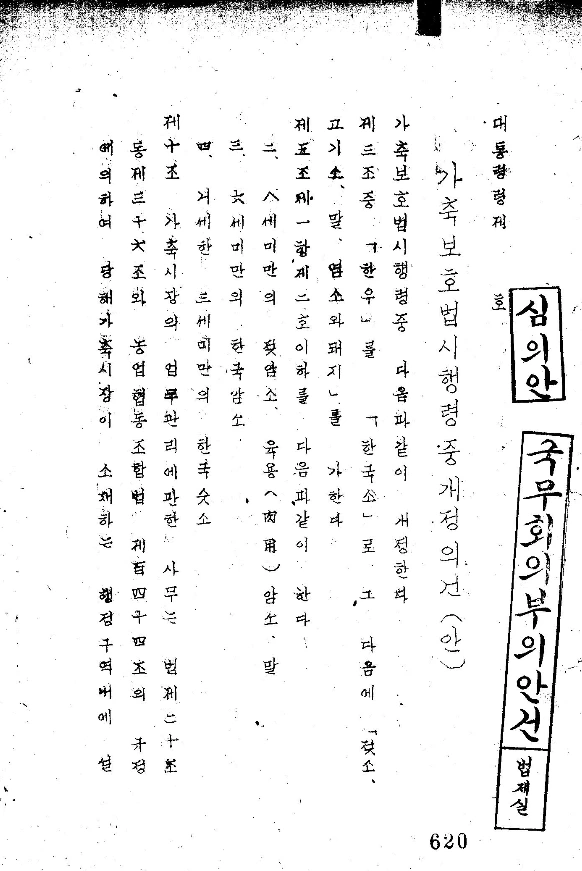 심의안
국무회의부의안건
법제실
대통령령제 호
가축보호법시행령중개정의건(안)
가축보호법시행령중 다음과같이 개정한다
제三조중 「한우」를 「한국소」로 그 다음에 「젖소、
고기소、말、염소와돼지」를 가한다
제五조제一항제二호이하를 다음과같이 한다
二、八세미만의 젖암소、육용(肉用)암소、말
三、六세미만의 한국암소
四、거세한 三세미만의 한국숫소
제十조 가축시장의 업무관리에관한 사무는 법제二十조
동제三十六조와 농업협동조합법 제百四十四조의 규정
에의하여 당해가축시장이 소재하는 행정구역내에 설
620